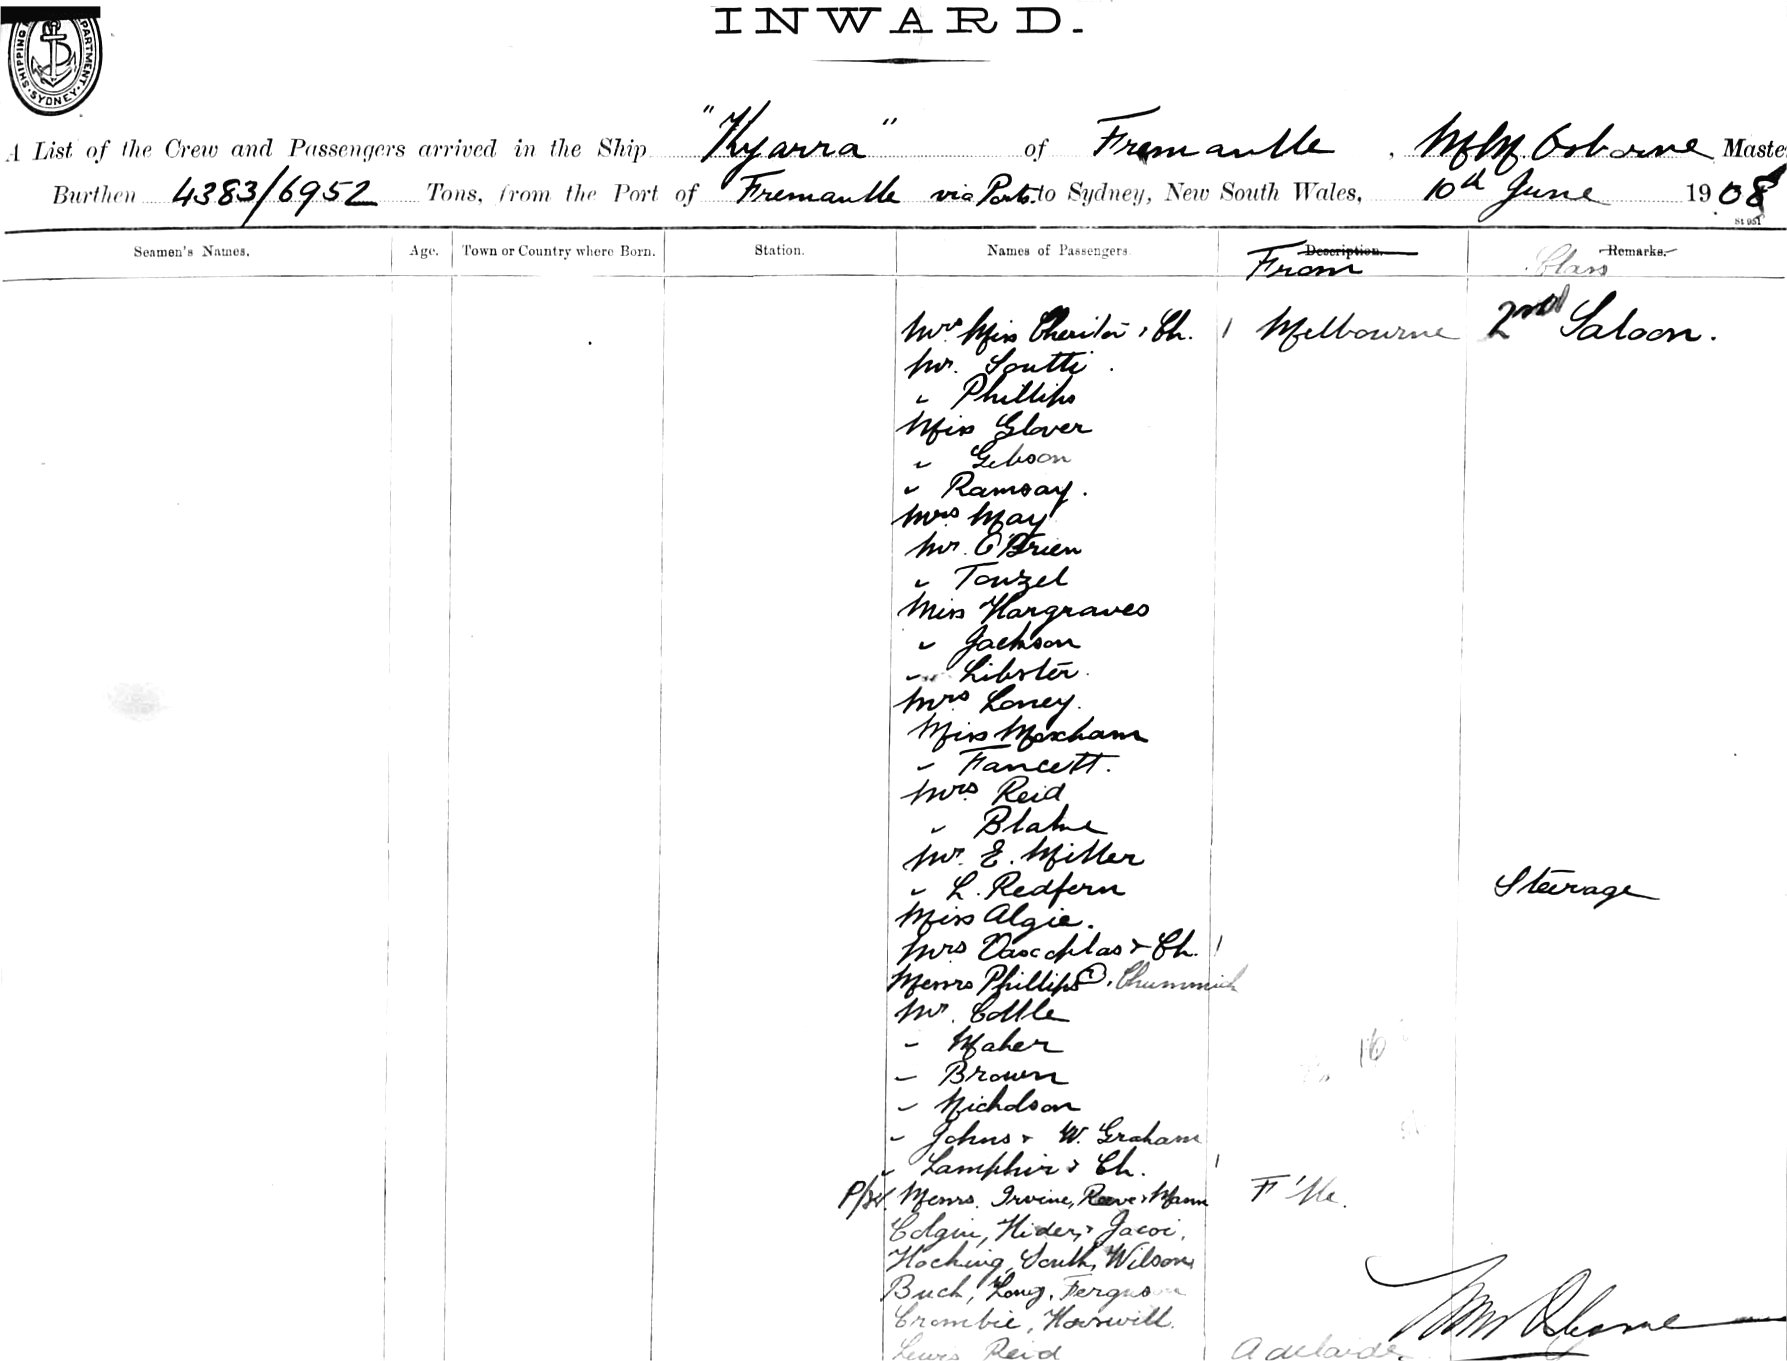 INWARD.
SHIPPING DEPARTMENT. SYDNEY.
A List of the Crew and Passengers arrived in the Ship "Kyarra" of Fremantle, Osborne Master
Burthen 4383/6952 Tons, from the Port of Fremantle via Ports to Sydney, New South Wales, 10th June 1908
St 951
Seamen's Names. Age. Town or Country where Born. Station. Names of Passengers Description. Remarks.
From Class
Mrs Miss Cheriton & Ch. 1 Melbourne 2nd Saloon.
Mr. Soutti
" Phillips
Miss Glover
" Gibson
" Ramsay.
Mrs May
Mr. O'Brien
" Touzel
Miss Hargraves
" Jackson
" Libster.
Mrs Loney.
Miss Moxham
" Fancett.
Mrs Reid
" Blake
Mr. E. Miller
" L. Redfern Steerage
Miss Algie.
Mrs & Ch. 1
Messrs Phillips 1.
Mr. Cottle
" Maher
" Brown
" Nicholson
" Johns & W. Graham
" Lamphir & Ch. 1
Messrs. Irvine, Reeve & Mann F'tle.
Colgin, Hider, & Jacoi,
Hocking, South, Wilson,
Buch, Long, Ferguson
Crombie, Horswill.
Lewis Reid Adelaide
Osborne